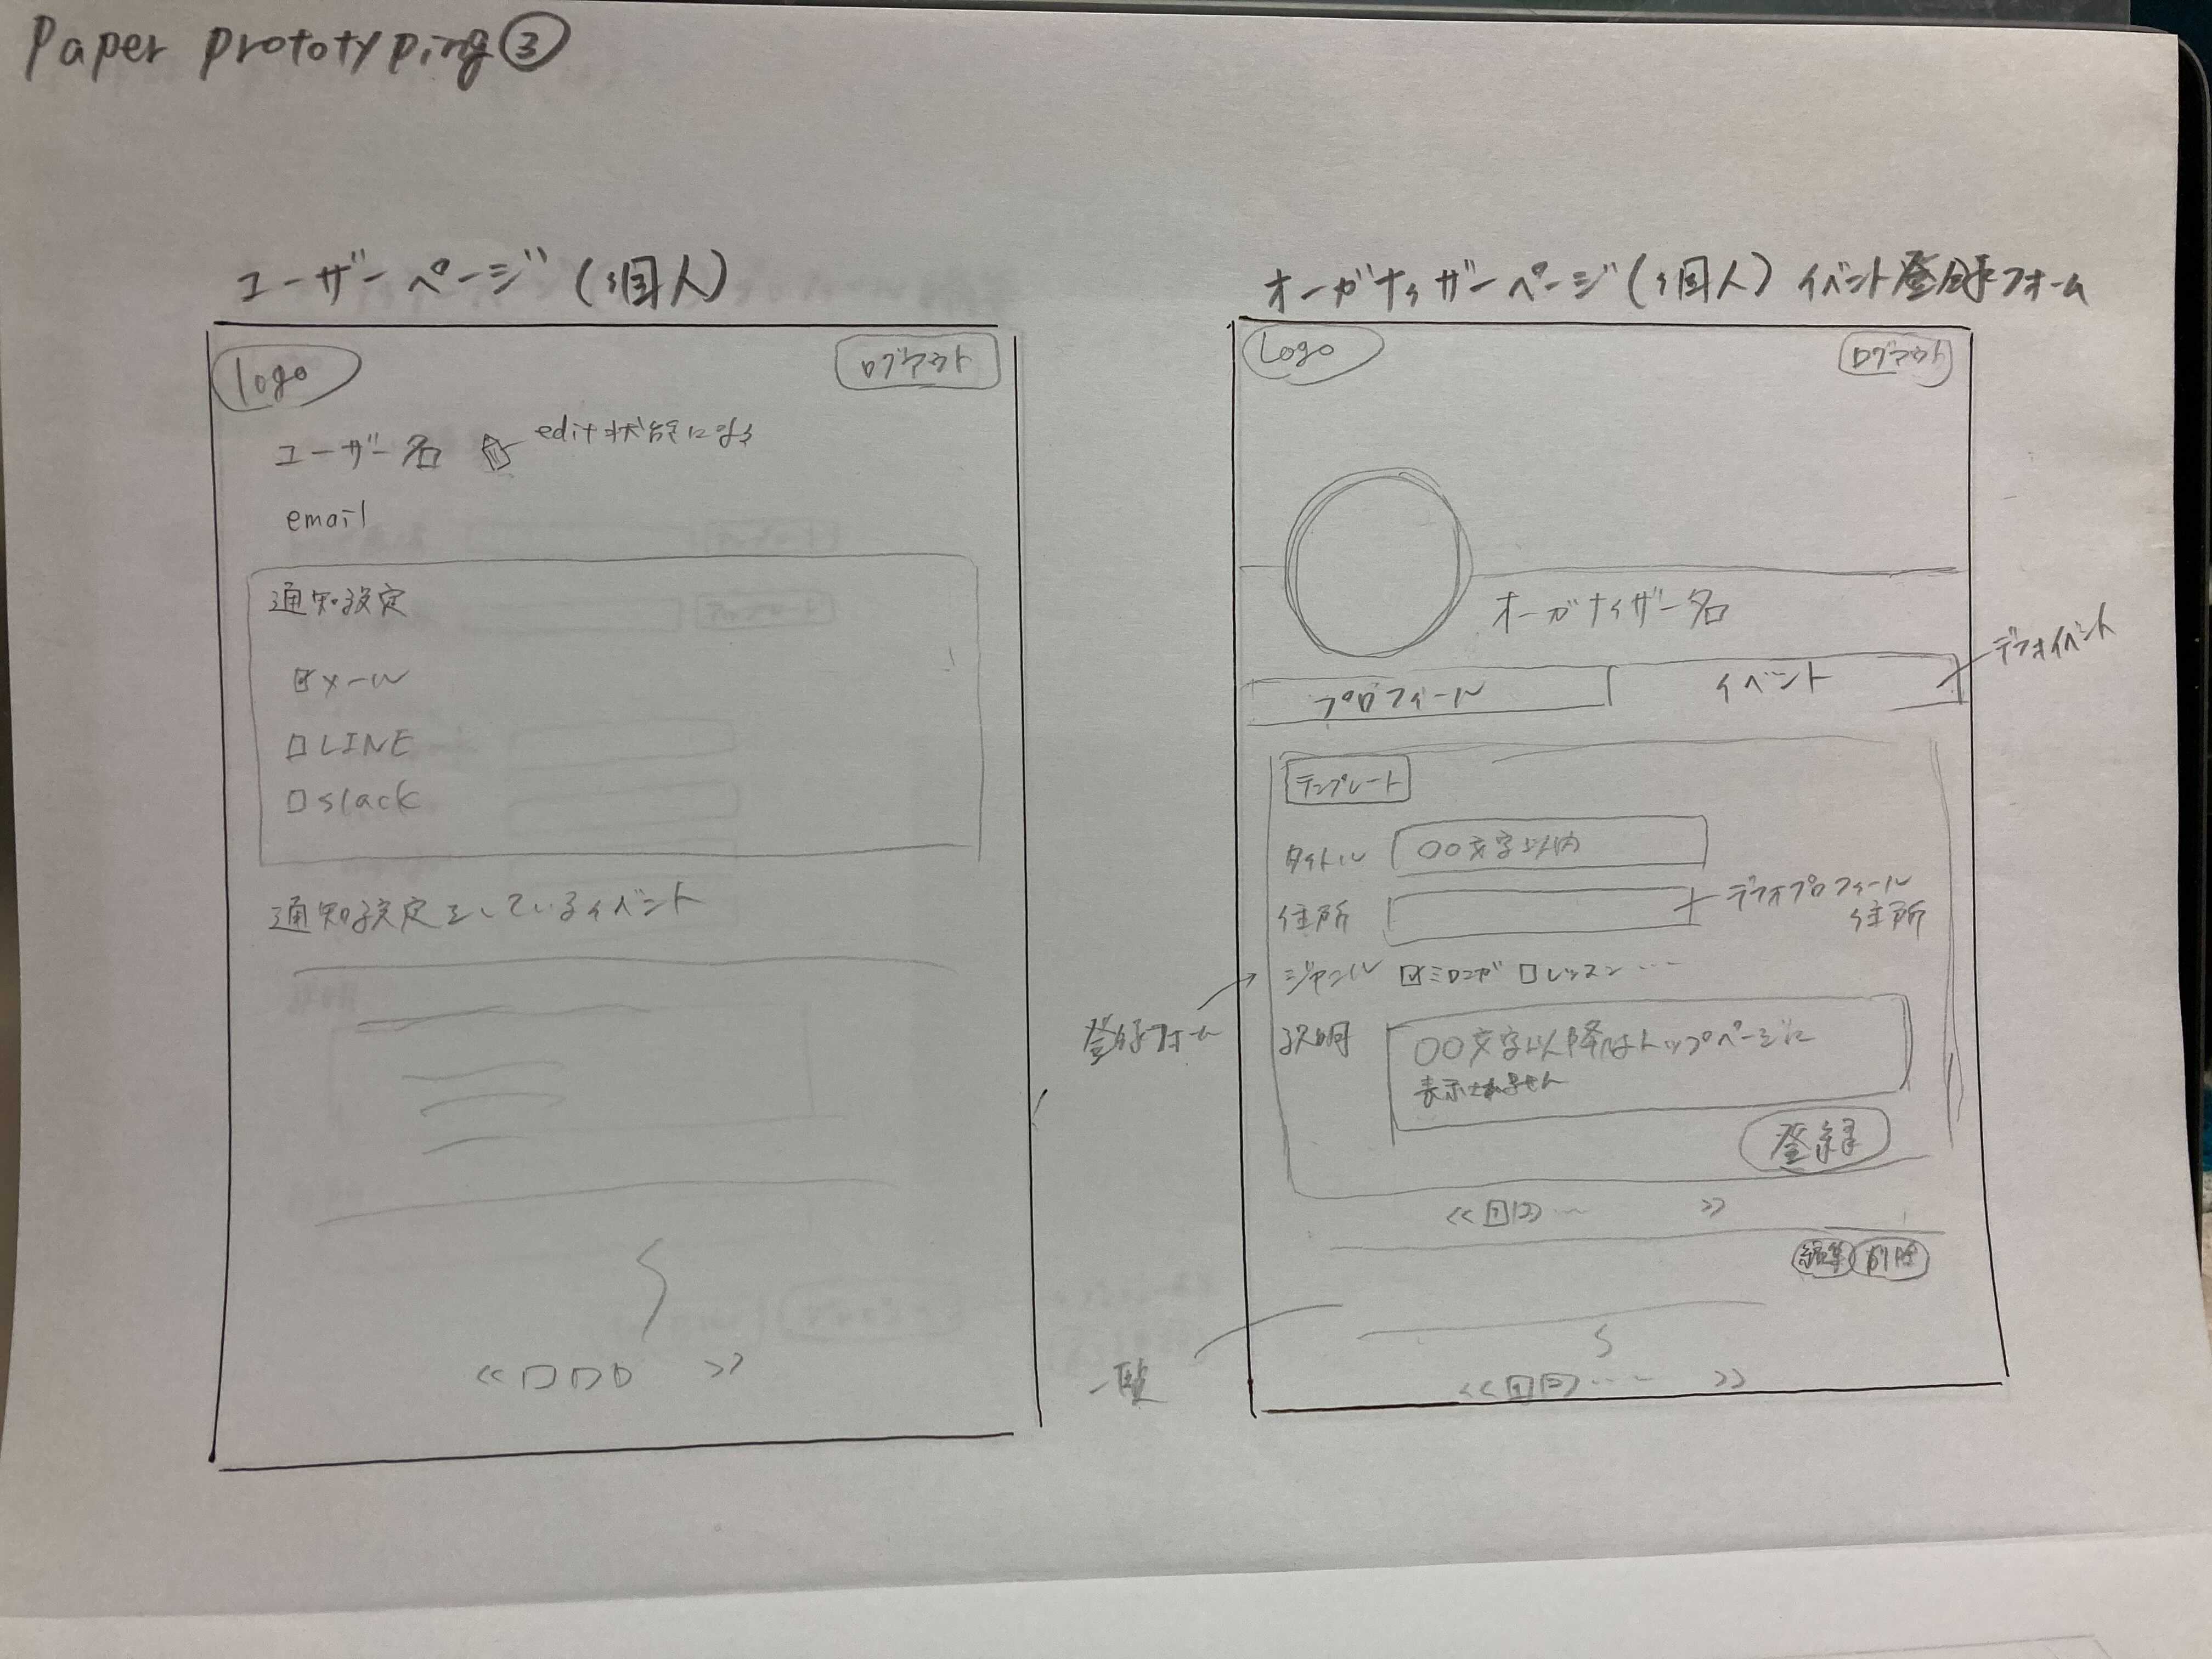 Paper prototyping③
ユーザーページ(個人)
logo
ログアウト
ユーザー名
edit状態になる
email
通知設定
メール
LINE
slack
通知設定をしているイベント
<< >>
オーガナイザーページ(個人) イベント登録フォーム
Logo
ログアウト
オーガナイザー名
デフォイベント
プロフィール
イベント
テンプレート
タイトル
〇〇文字以内
住所
デフォプロフィール
住所
ジャンル
ミロンガ
レッスン ...
登録フォーム
説明
〇〇文字以降はトップページに
表示されません
登録
<< 1 2 ... >>
編集
削除
一覧
<< 1 2 ... >>